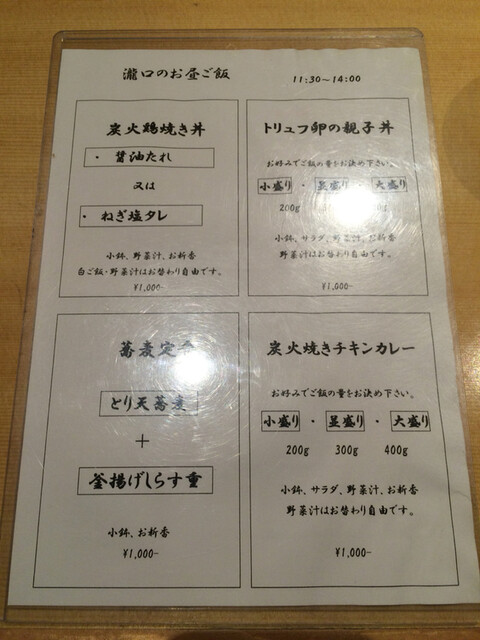 瀧口のお昼ご飯
11:30~14:00
炭火鶏焼き丼
・ 醤油たれ
又は
・ ねぎ塩タレ
小鉢、野菜汁、お新香
白ご飯・野菜汁はお替わり自由です。
¥1,000-
トリュフ卵の親子丼
お好みでご飯の量をお決め下さい。
小盛り ・ 並盛り ・ 大盛り
200g
小鉢、サラダ、野菜汁、お新香
野菜汁はお替わり自由です。
¥1,000-
蕎麦定食
とり天蕎麦
+
釜揚げしらす重
小鉢、お新香
¥1,000-
炭火焼きチキンカレー
お好みでご飯の量をお決め下さい。
小盛り ・ 並盛り ・ 大盛り
200g 300g 400g
小鉢、サラダ、野菜汁、お新香
野菜汁はお替わり自由です。
¥1,000-